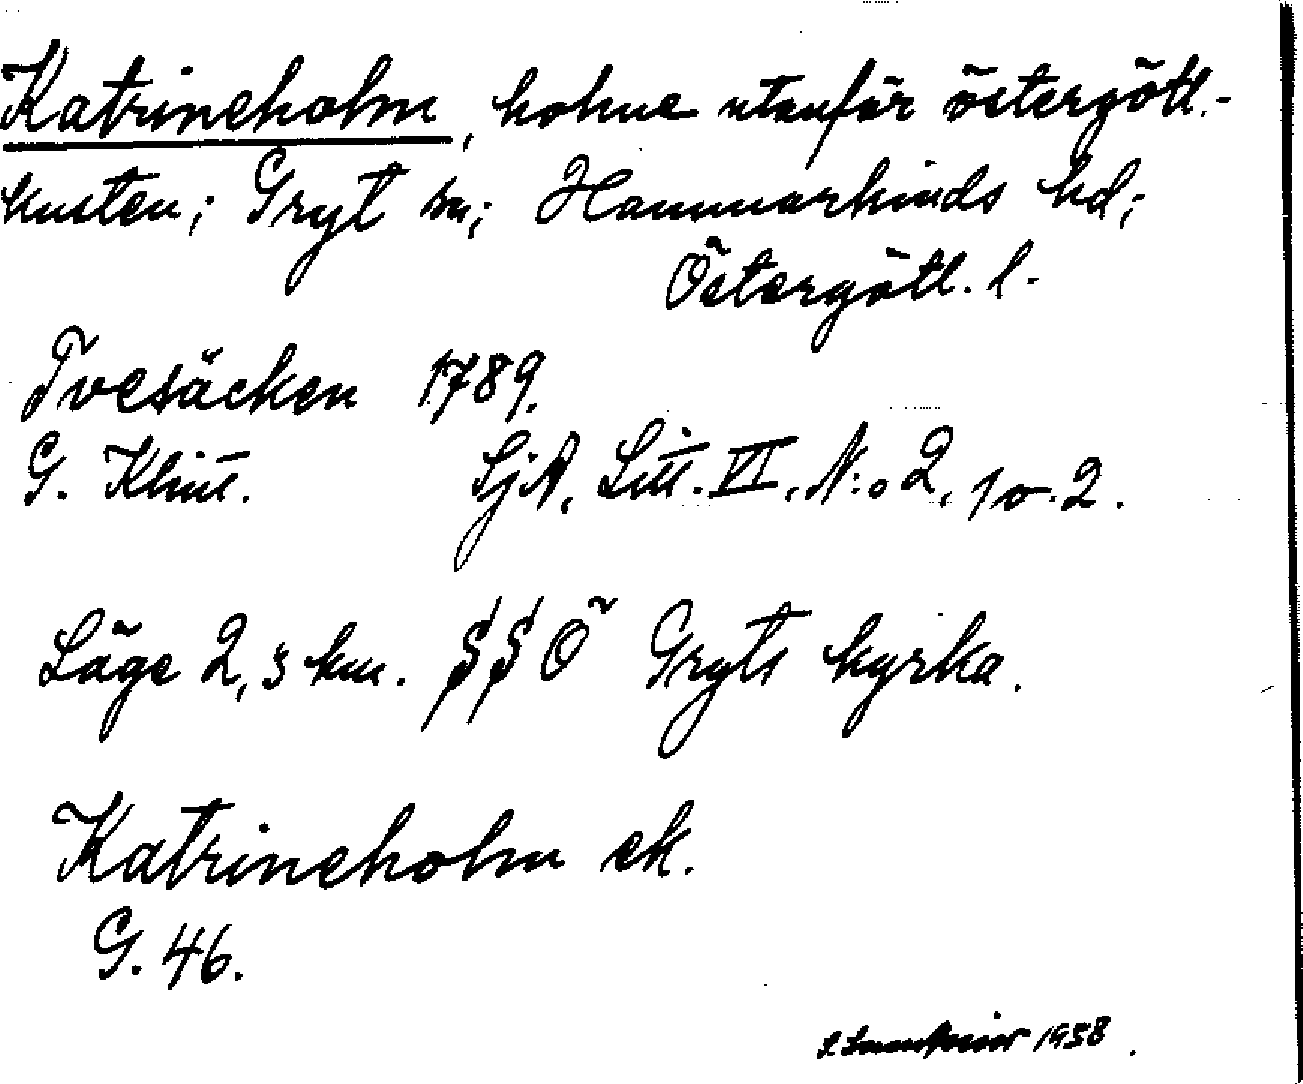 Katrineholm, holme utanför östergötl.-
kusten; Gryt sn; Hammarkinds hd;
Östergötl. l.
Tvesäcken 1789.
G. Klint. SjA, Litt. VI, N:o 2, 1 o. 2.
Läge 2,3 km. SSÖ Gryts kyrka.
Katrineholm ek.
G. 46.
1938.